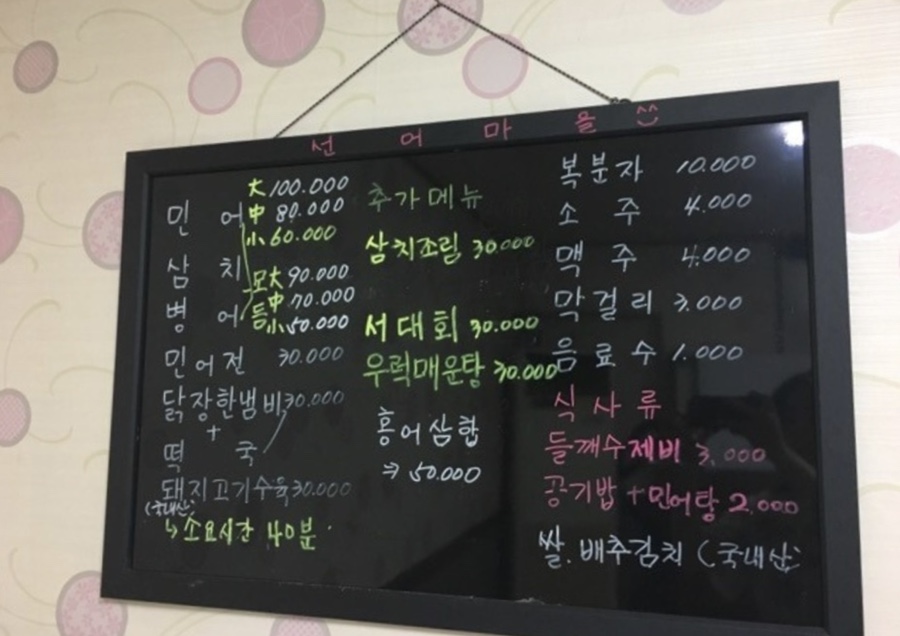 선어마을 ^^
민어 大 100.000
中 80.000
小 60.000
삼치
병어 모듬 大 90.000
中 70.000
小 50.000
민어전 30.000
닭장한냄비 30.000
+
떡국
돼지고기수육 30.000
(국내산)
↳ 소요시간 40분
추가메뉴
삼치조림 30.000
서대회 30.000
우럭매운탕 30.000
홍어삼합
⇒ 50.000
복분자 10.000
소주 4.000
맥주 4.000
막걸리 3.000
음료수 1.000
식사류
들깨수제비 3.000
공기밥+민어탕 2.000
쌀.배추김치 (국내산)